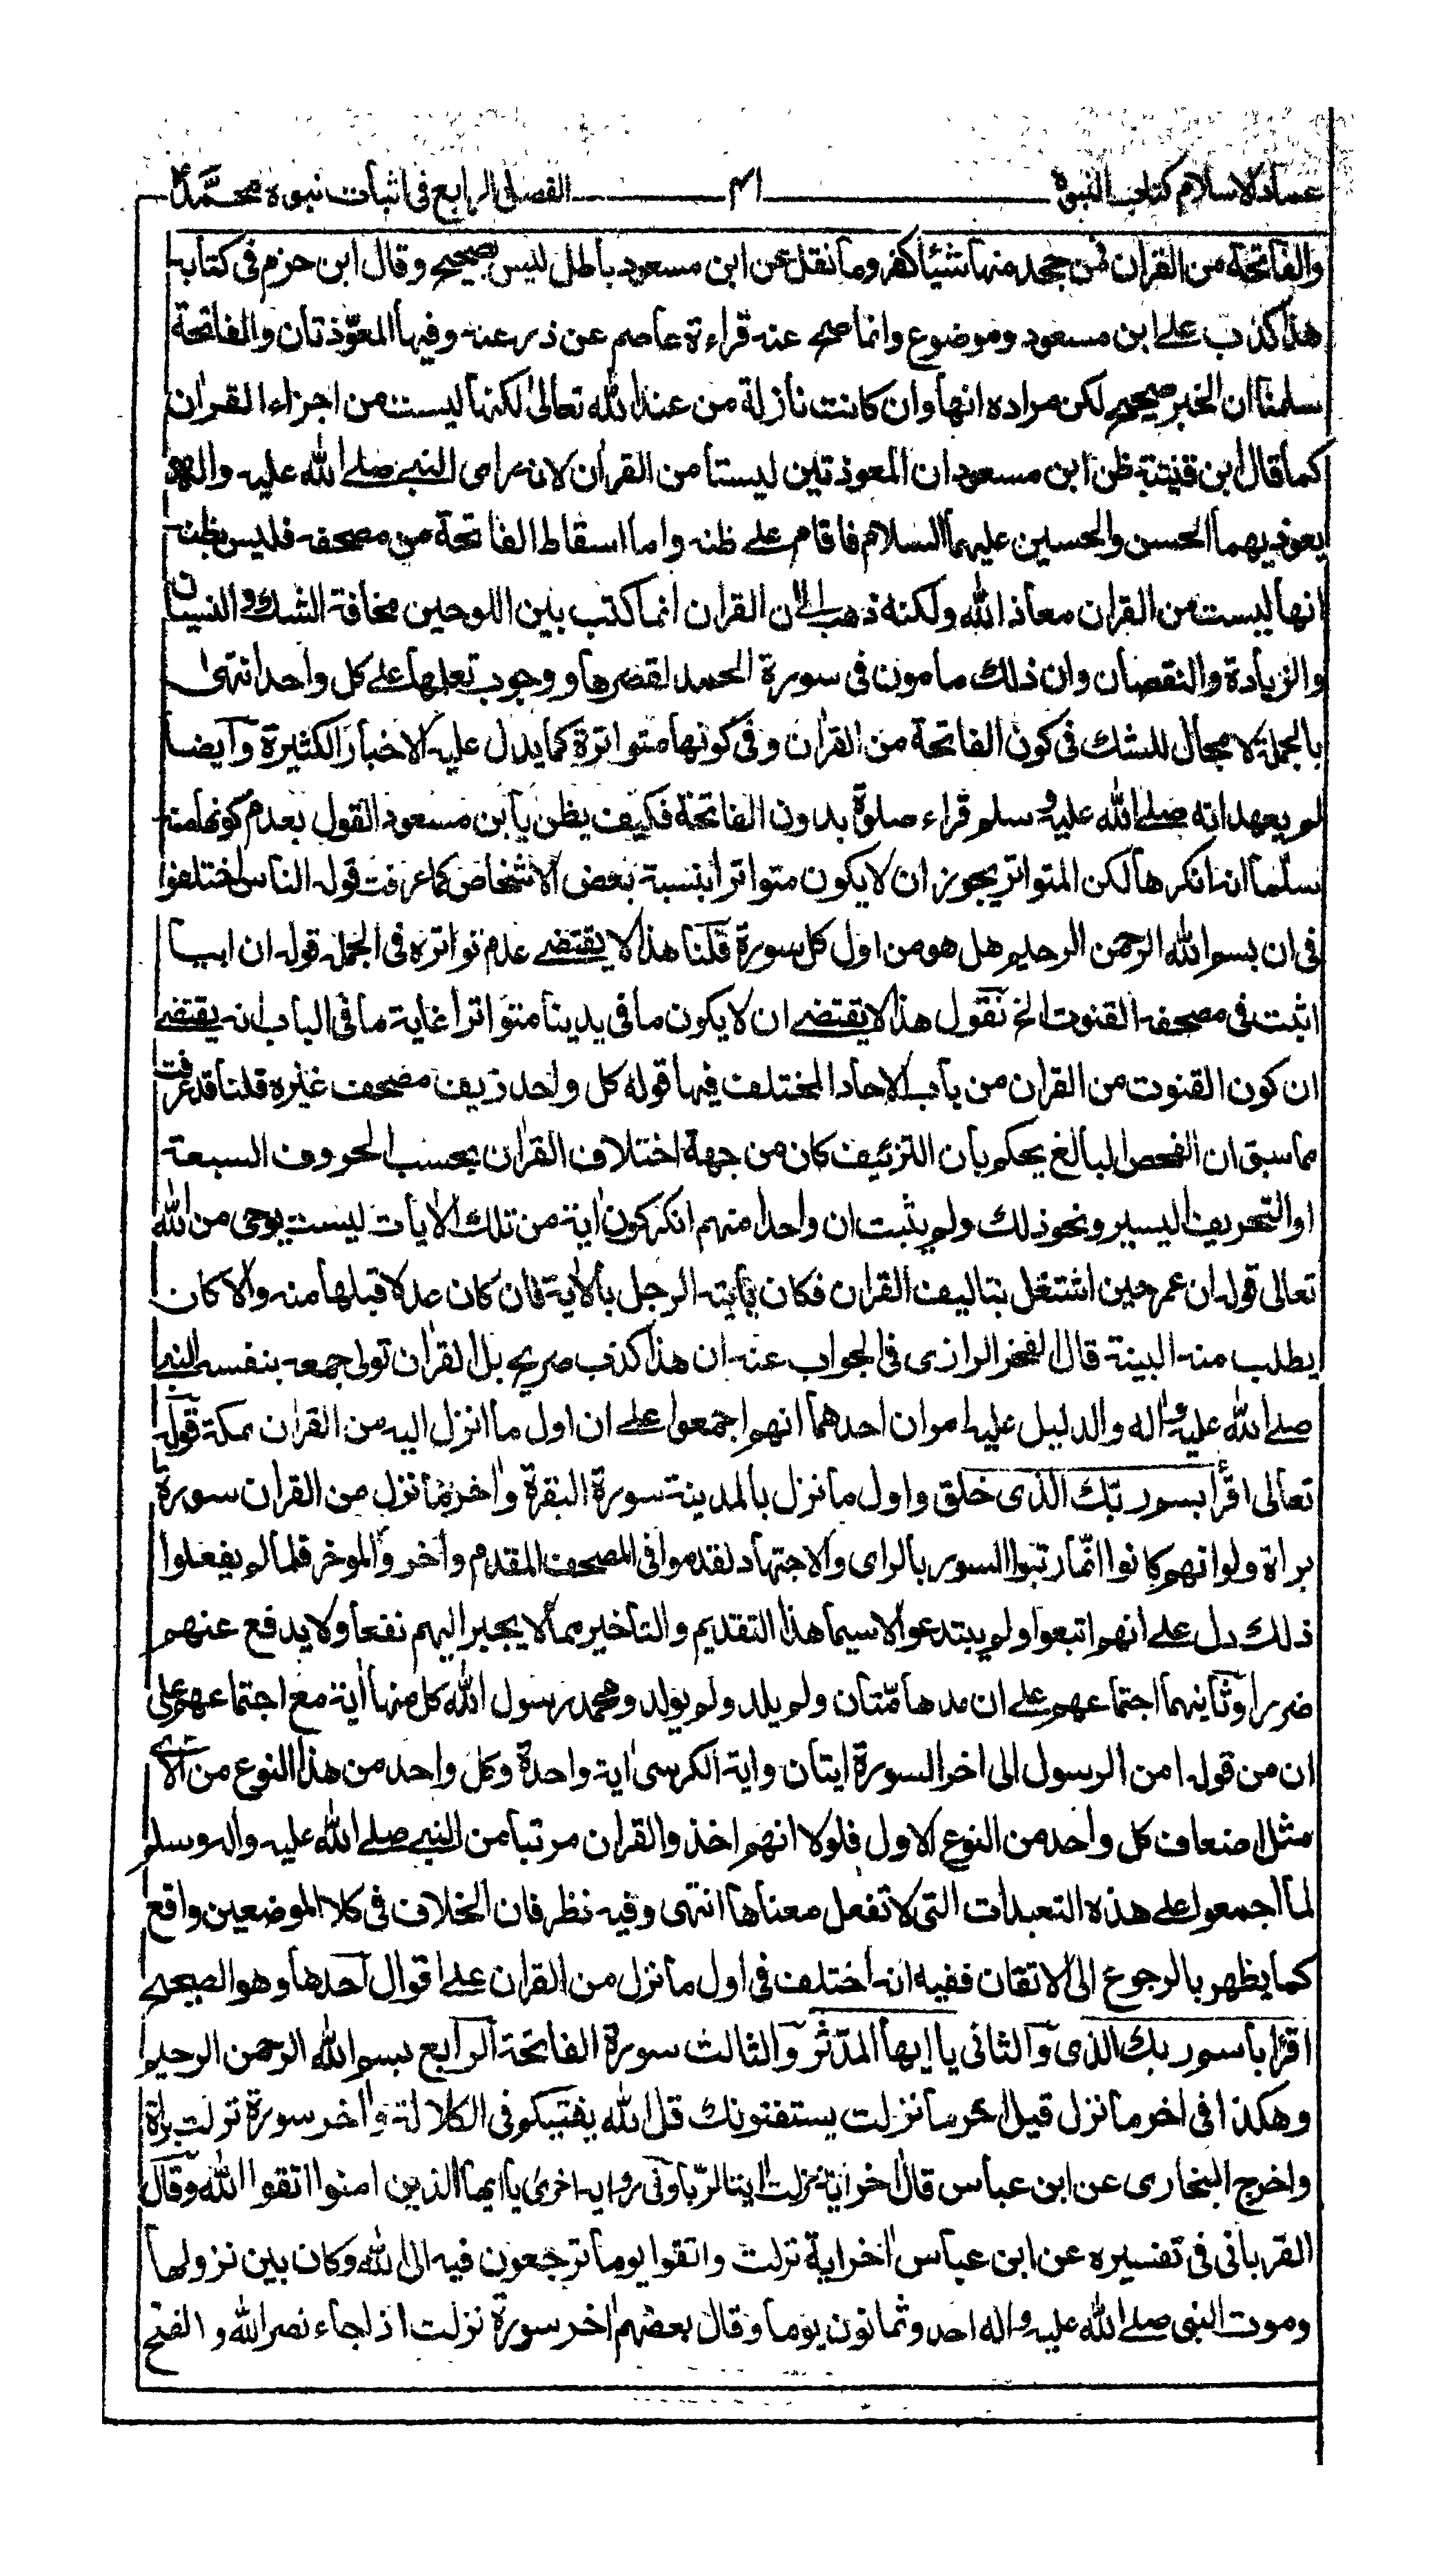 عماد الاسلام كتاب النبوة ٤١ الفصل الرابع فى اثبات نبوة محمدؐ
والفاتحة من القران فمن جحد منها شيئا كفر وما نقل عن ابن مسعود باطل ليس بصحيح وقال ابن حزم فى كتابه
هذا كذب على ابن مسعود وموضوع وانما صح عنه قراءة عاصم عن ذر عنه وفيها المعوّذتان والفاتحة
سلمنا ان الخبر صحيح لكن مراده انها وان كانت نازلة من عند الله تعالى لكنها ليست من اجزاء القران
كما قال ابن قتيبة ظن ابن مسعود ان المعوذتين ليستا من القران لانه راى النبي صلى الله عليه واله
يعوذ بهما الحسن والحسين عليهما السلام فاقام على ظنه واما اسقاط الفاتحة من مصحفه فليس بظنه
انها ليست من القران معاذ الله ولكنه ذهب الى ان القران انما كتب بين اللوحين مخافة الشك والنسيان
والزيادة والنقصان وان ذلك مامون فى سورة الحمد لقصرها ووجوب تعلمها على كل واحد انتهى
بالجملة لا مجال للشك فى كون الفاتحة من القران وفى كونها متواترة كما يدل عليه الاخبار الكثيرة وايضا
لم يعهد انه صلى الله عليه وسلم قراء صلوة بدون الفاتحة فكيف يظن بابن مسعود القول بعدم كونها منه
سلمنا انه انكرها لكن المتواتر يجوز ان لا يكون متواترا بنسبة بعض الاشخاص كما عرفت قوله الناس اختلفوا
فى ان بسم الله الرحمن الرحيم هل هو من اول كل سورة قلنا هذا لا يقتضى عدم تواتره فى الجملة قوله ان ابيا
اثبت فى مصحفه القنوت الخ نقول هذا لا يقتضى ان لا يكون ما فى يدينا متواترا غاية ما فى الباب انه يقتضى
ان كون القنوت من القران من باب الاحاد المختلف فيها قوله كل واحد زيف مصحف غيره قلنا قد عرفت
مما سبق ان الفحص البالغ يحكم بان التزئيف كان من جهة اختلاف القران بحسب الحروف السبعة
او التحريف اليسير ونحو ذلك ولم يثبت ان واحدا منهم انكر كون اية من تلك الايات ليست بوحى من الله
تعالى قوله ان عمر حين اشتغل بتاليف القران فكان ياتيه الرجل بالاية فان كان عدلا قبلها منه والا كان
يطلب منه البينة قال الفخر الرازى فى الجواب عنه ان هذا كذب صريح بل القران تولى جمعه بنفسه النبي
صلى الله عليه واله والدليل عليه امران احدهما انهم اجمعوا على ان اول ما انزل اليه من القران بمكة قوله
تعالى اقرأ بسم ربك الذى خلق واول ما نزل بالمدينة سورة البقرة واخر ما نزل من القران سورة
براة ولو انهم كانوا انما رتبوا السور بالراى والاجتهاد لقدموا فى المصحف المقدم واخروا الموخر فلما لم يفعلوا
ذلك دل على انهم اتبعوا ولم يبتدعوا لا سيما هذا التقديم والتاخير مما لا يجبر اليهم نفعا ولا يدفع عنهم
ضررا وثانيهما اجتماعهم على ان مدهامّتان ولم يلد ولم يولد ومحمد رسول الله كل منها اية مع اجتماعهم على
ان من قوله امن الرسول الى اخر السورة ايتان واية الكرسى اية واحدة وكل واحد من هذا النوع من الاى
مثل اضعاف كل واحد من النوع الاول فلولا انهم اخذوا القران مرتبا من النبي صلى الله عليه واله وسلم
لما اجمعوا على هذه التعبدات التى لا تفعل معناها انتهى وفيه نظر فان الخلاف فى كلا الموضعين واقع
كما يظهر بالرجوع الى الاتقان ففيه انه اختلف فى اول ما نزل من القران على اقوال احدها وهو الصحيح
اقرأ باسم ربك الذى والثانى يا ايها المدّثر والثالث سورة الفاتحة الرابع بسم الله الرحمن الرحيم
وهكذا فى اخر ما نزل قيل اخر ما نزلت يستفتونك قل الله يفتيكم فى الكلالة واخر سورة نزلت براة
واخرج البخارى عن ابن عباس قال اخر اية نزلت اية الرّبا وفى رواية اخرى يا ايها الذين امنوا اتقوا الله وقال
القربانى فى تفسيره عن ابن عباس اخر اية نزلت واتقوا يوما ترجعون فيه الى الله وكان بين نزولها
وموت النبى صلى الله عليه واله احد وثمانون يوما وقال بعضهم اخر سورة نزلت اذا جاء نصر الله والفتح